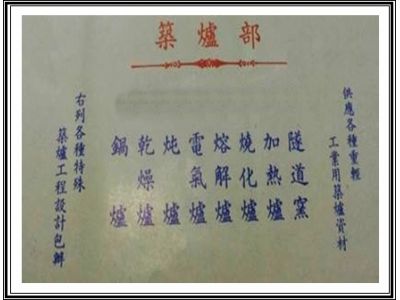 築爐部
供應各種重輕
工業用築爐資材
隧道窯
加熱爐
燒化爐
熔解爐
電氣爐
炖爐
乾燥爐
鍋爐
右列各種特殊
築爐工程設計包辦